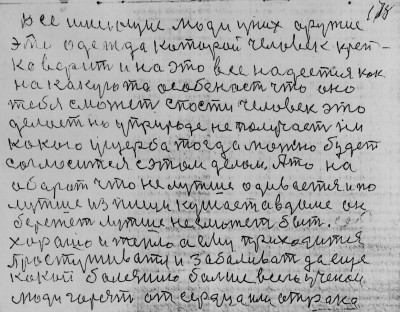 178
все имеющие люди у них оружие
это одежда которой человек креп-
ко верит и на это все надеется как
на какую то особеность что оно
тебя сможет спости человек это
делает но у природе не получает ни
какого ущерба тогда можно будет
согласится с этом делом, А то на
абарот что не лутше одивается и по
лутше из пищи кушает а в доме он
бережет лутше не сможет быт.
хорашо и тепло а ему приходится
простуживати и забаливат да еще
какой болезнию болше всего ученои
люди горят от сердца или от рака